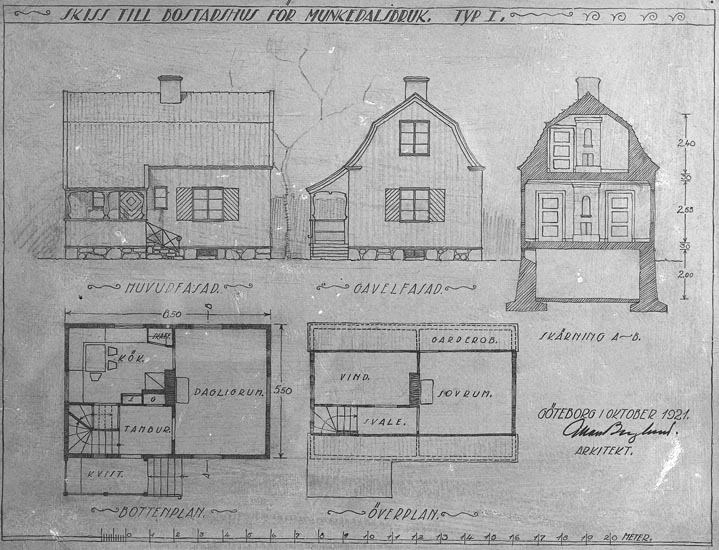 SKISS TILL BOSTADSHUS FÖR MUNKEDALSBRUK. TYP I.
HUVUDFASAD.
GAVELFASAD.
2.40
2.65
2.00
SKÄRNING A-B.
6.50
B
KÖK.
SKAFF.
DAGLIGRUM.
5.50
TAMBUR.
KVIST.
A
BOTTENPLAN.
GARDEROB.
VIND.
SOVRUM.
SVALE.
ÖVERPLAN.
GÖTEBORG I OKTOBER 1921.
ARKITEKT.
0 1 2 3 4 5 6 7 8 9 10 11 12 13 14 15 16 17 18 19 20 METER.